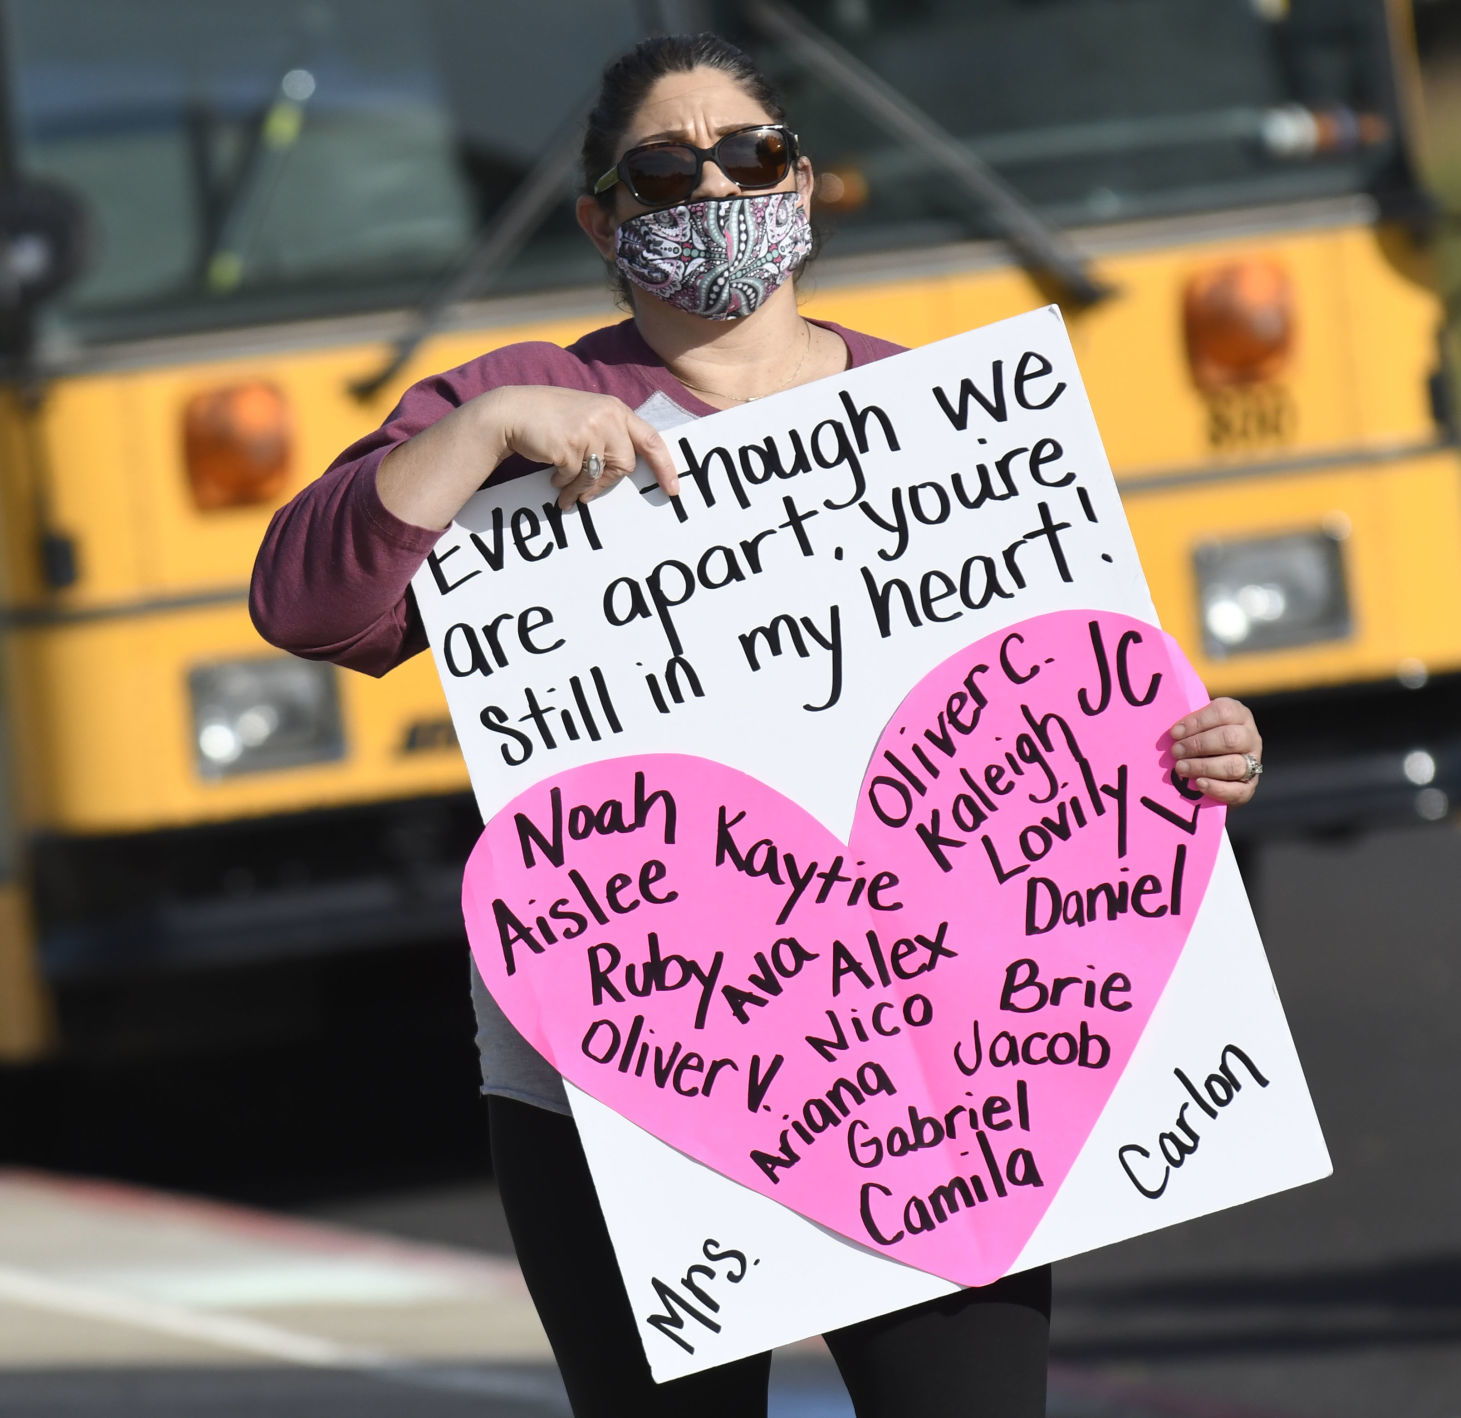 Even though we
are apart, youre
still in my heart!
Oliver C.
JC
Kaleigh
Lovily
Noah
Kaytie
Aislee
Daniel
Ruby
Ava
Alex
Brie
Nico
Oliver V.
Jacob
Ariana
Gabriel
Camila
Mrs.
Carlon